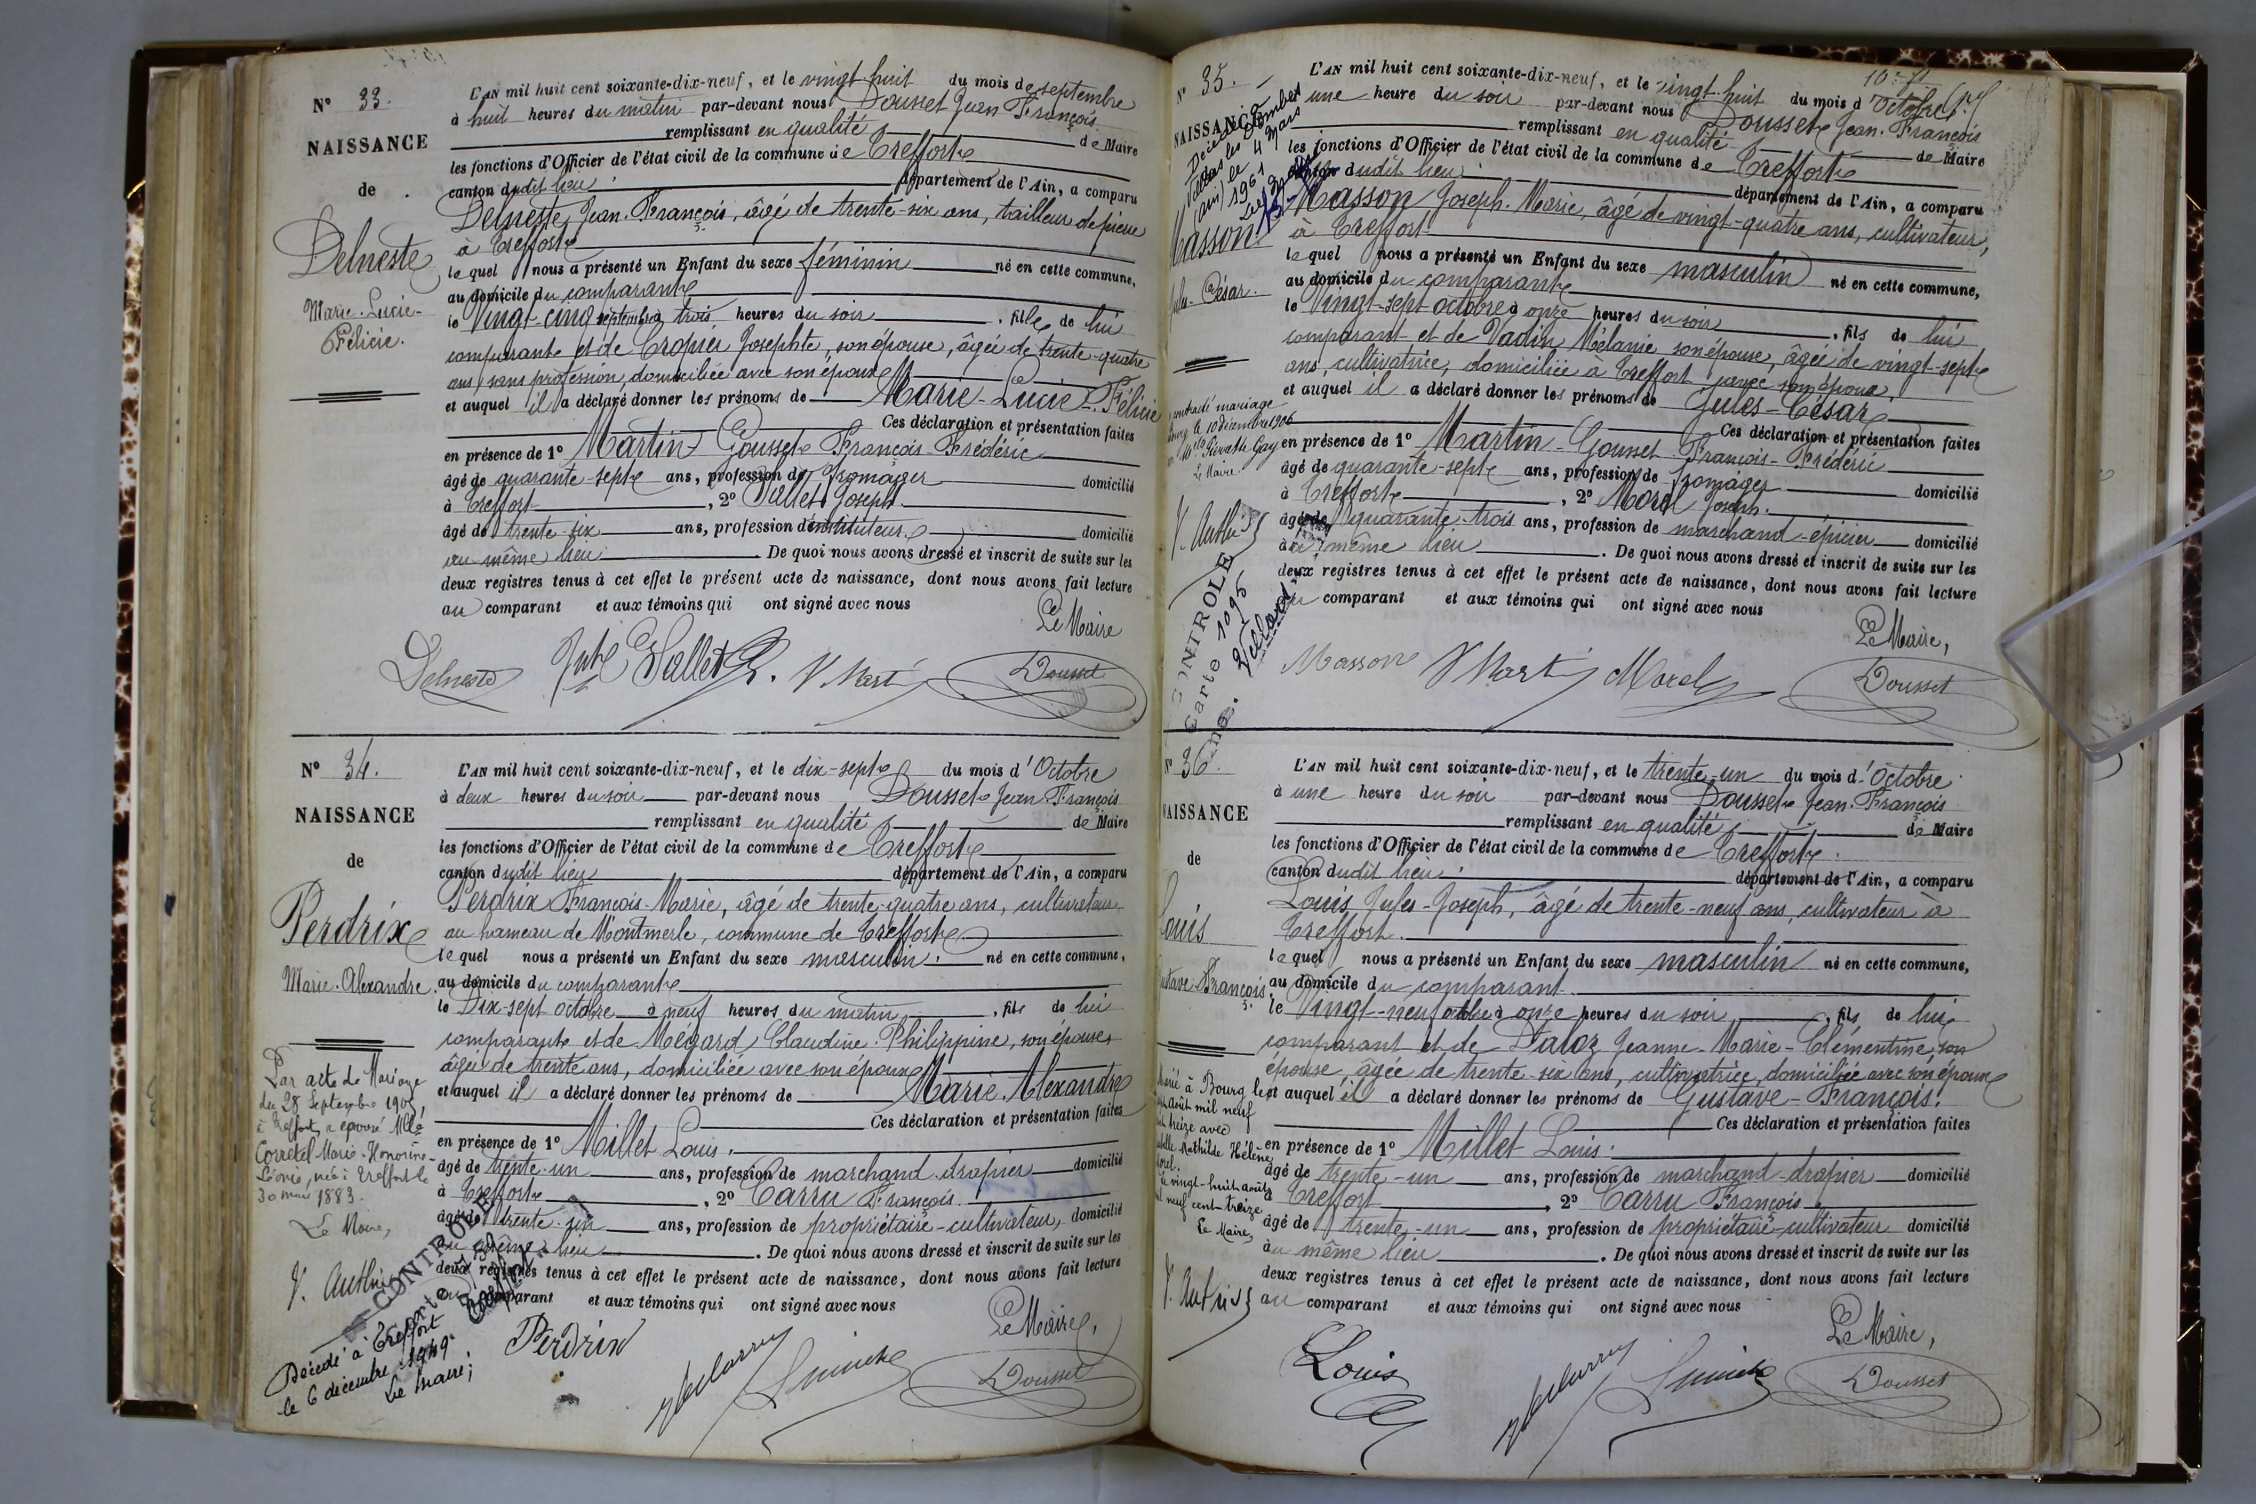 N° 33.
NAISSANCE
de
Delneste
Marie-Lucie-
Félicie.
L'AN mil huit cent soixante-dix-neuf, et le vingt-huit du mois de septembre
à huit heures du matin par-devant nous Dousset Jean-François
remplissant en qualité de Maire
les fonctions d'Officier de l'état civil de la commune de Treffort
canton dudit lieu département de l'Ain, a comparu
Delneste Jean-François, âgé de trente-six ans, tailleur de pierre
à Treffort
lequel nous a présenté un Enfant du sexe féminin né en cette commune,
au domicile du comparant
le Vingt-cinq septembre à trois heures du soir, fille de lui
comparant et de Cropier Josephte, son épouse, âgée de trente-quatre
ans, sans profession, domiciliée avec son époux
et auquel il a déclaré donner les prénoms de Marie-Lucie-Félicie
Ces déclaration et présentation faites
en présence de 1° Martin Gousset François Frédéric
âgé de quarante-sept ans, profession de fromager domicilié
à Treffort, 2° Sallet Joseph.
âgé de trente-six ans, profession d'instituteur domicilié
au même lieu. De quoi nous avons dressé et inscrit de suite sur les
deux registres tenus à cet effet le présent acte de naissance, dont nous avons fait lecture
au comparant et aux témoins qui ont signé avec nous
Le Maire
Delneste Sallet Dousset
N° 34.
NAISSANCE
de
Perdrix
Marie-Alexandre.
Par acte de Mariage
du 28 Septembre
à Treffort, a épousé Mlle
Corretel Marie-Honorine-
Léonie, née à Treffort le
30 mai 1883.
Le Maire,
CONTROLE
Décédé à Treffort
le 6 décembre 1949.
Le Maire;
L'AN mil huit cent soixante-dix-neuf, et le dix-sept du mois d'Octobre
à deux heures du soir par-devant nous Dousset Jean-François
remplissant en qualité de Maire
les fonctions d'Officier de l'état civil de la commune de Treffort
canton dudit lieu département de l'Ain, a comparu
Perdrix François-Marie, âgé de trente-quatre ans, cultivateur
au hameau de Montmerle, commune de Treffort
lequel nous a présenté un Enfant du sexe masculin né en cette commune,
au domicile du comparant
le Dix-sept octobre à neuf heures du matin, fils de lui
comparant et de Mégard Claudine-Philippine, son épouse,
âgée de trente ans, domiciliée avec son époux
et auquel il a déclaré donner les prénoms de Marie-Alexandre
Ces déclaration et présentation faites
en présence de 1° Millet Louis.
âgé de trente-un ans, profession de marchand-drapier domicilié
à Treffort, 2° Carru François.
âgé de trente-un ans, profession de propriétaire-cultivateur, domicilié
au même lieu. De quoi nous avons dressé et inscrit de suite sur les
deux registres tenus à cet effet le présent acte de naissance, dont nous avons fait lecture
au comparant et aux témoins qui ont signé avec nous
Le Maire,
Perdrix Dousset
N° 35.
NAISSANCE
Masson
Jules-César.
contracté mariage
le 10 décembre 1906
Le Maire
CONTROLE
Carte 1095
L'AN mil huit cent soixante-dix-neuf, et le vingt-huit du mois d'Octobre
à une heure du soir par-devant nous Dousset Jean-François
remplissant en qualité de Maire
les fonctions d'Officier de l'état civil de la commune de Treffort
canton dudit lieu département de l'Ain, a comparu
Masson Joseph-Marie, âgé de vingt-quatre ans, cultivateur,
à Treffort
lequel nous a présenté un Enfant du sexe masculin né en cette commune,
au domicile du comparant
le Vingt-sept octobre à onze heures du soir, fils de lui
comparant et de Vadin Mélanie son épouse, âgée de vingt-sept
ans, cultivatrice, domiciliée à Treffort avec son époux.
et auquel il a déclaré donner les prénoms de Jules-César
Ces déclaration et présentation faites
en présence de 1° Martin-Gousset François-Frédéric
âgé de quarante-sept ans, profession de fromager domicilié
à Treffort, 2° Morel Joseph.
âgé de quarante-trois ans, profession de marchand-épicier domicilié
au même lieu. De quoi nous avons dressé et inscrit de suite sur les
deux registres tenus à cet effet le présent acte de naissance, dont nous avons fait lecture
au comparant et aux témoins qui ont signé avec nous
Le Maire,
Masson Morel Dousset
N° 36.
NAISSANCE
de
Louis
Gustave-François
Marié à Bourg le
août mil neuf
cent treize avec
Mathilde Hélène
vingt-huit août
neuf cent treize
Le Maire,
L'AN mil huit cent soixante-dix-neuf, et le trente-un du mois d'Octobre
à une heure du soir par-devant nous Dousset Jean-François
remplissant en qualité de Maire
les fonctions d'Officier de l'état civil de la commune de Treffort
canton dudit lieu département de l'Ain, a comparu
Louis Jules-Joseph, âgé de trente-neuf ans, cultivateur à
Treffort.
lequel nous a présenté un Enfant du sexe masculin né en cette commune,
au domicile du comparant
le Vingt-neuf octobre à onze heures du soir, fils de lui
comparant et de Daloz Jeanne-Marie-Clémentine, son
épouse, âgée de trente-six ans, cultivatrice, domiciliée avec son époux
et auquel il a déclaré donner les prénoms de Gustave-François.
Ces déclaration et présentation faites
en présence de 1° Millet Louis.
âgé de trente-un ans, profession de marchand-drapier domicilié
à Treffort, 2° Carru François.
âgé de trente-un ans, profession de propriétaire-cultivateur domicilié
au même lieu. De quoi nous avons dressé et inscrit de suite sur les
deux registres tenus à cet effet le présent acte de naissance, dont nous avons fait lecture
au comparant et aux témoins qui ont signé avec nous
Le Maire,
Louis Dousset